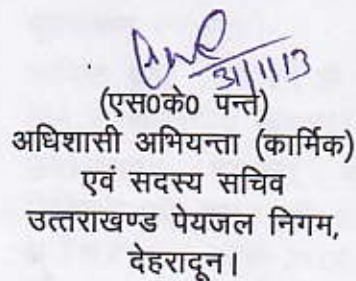 31/1/13
(एस0के0 पन्त)
अधिशासी अभियन्ता (कार्मिक)
एवं सदस्य सचिव
उत्तराखण्ड पेयजल निगम,
देहरादून।